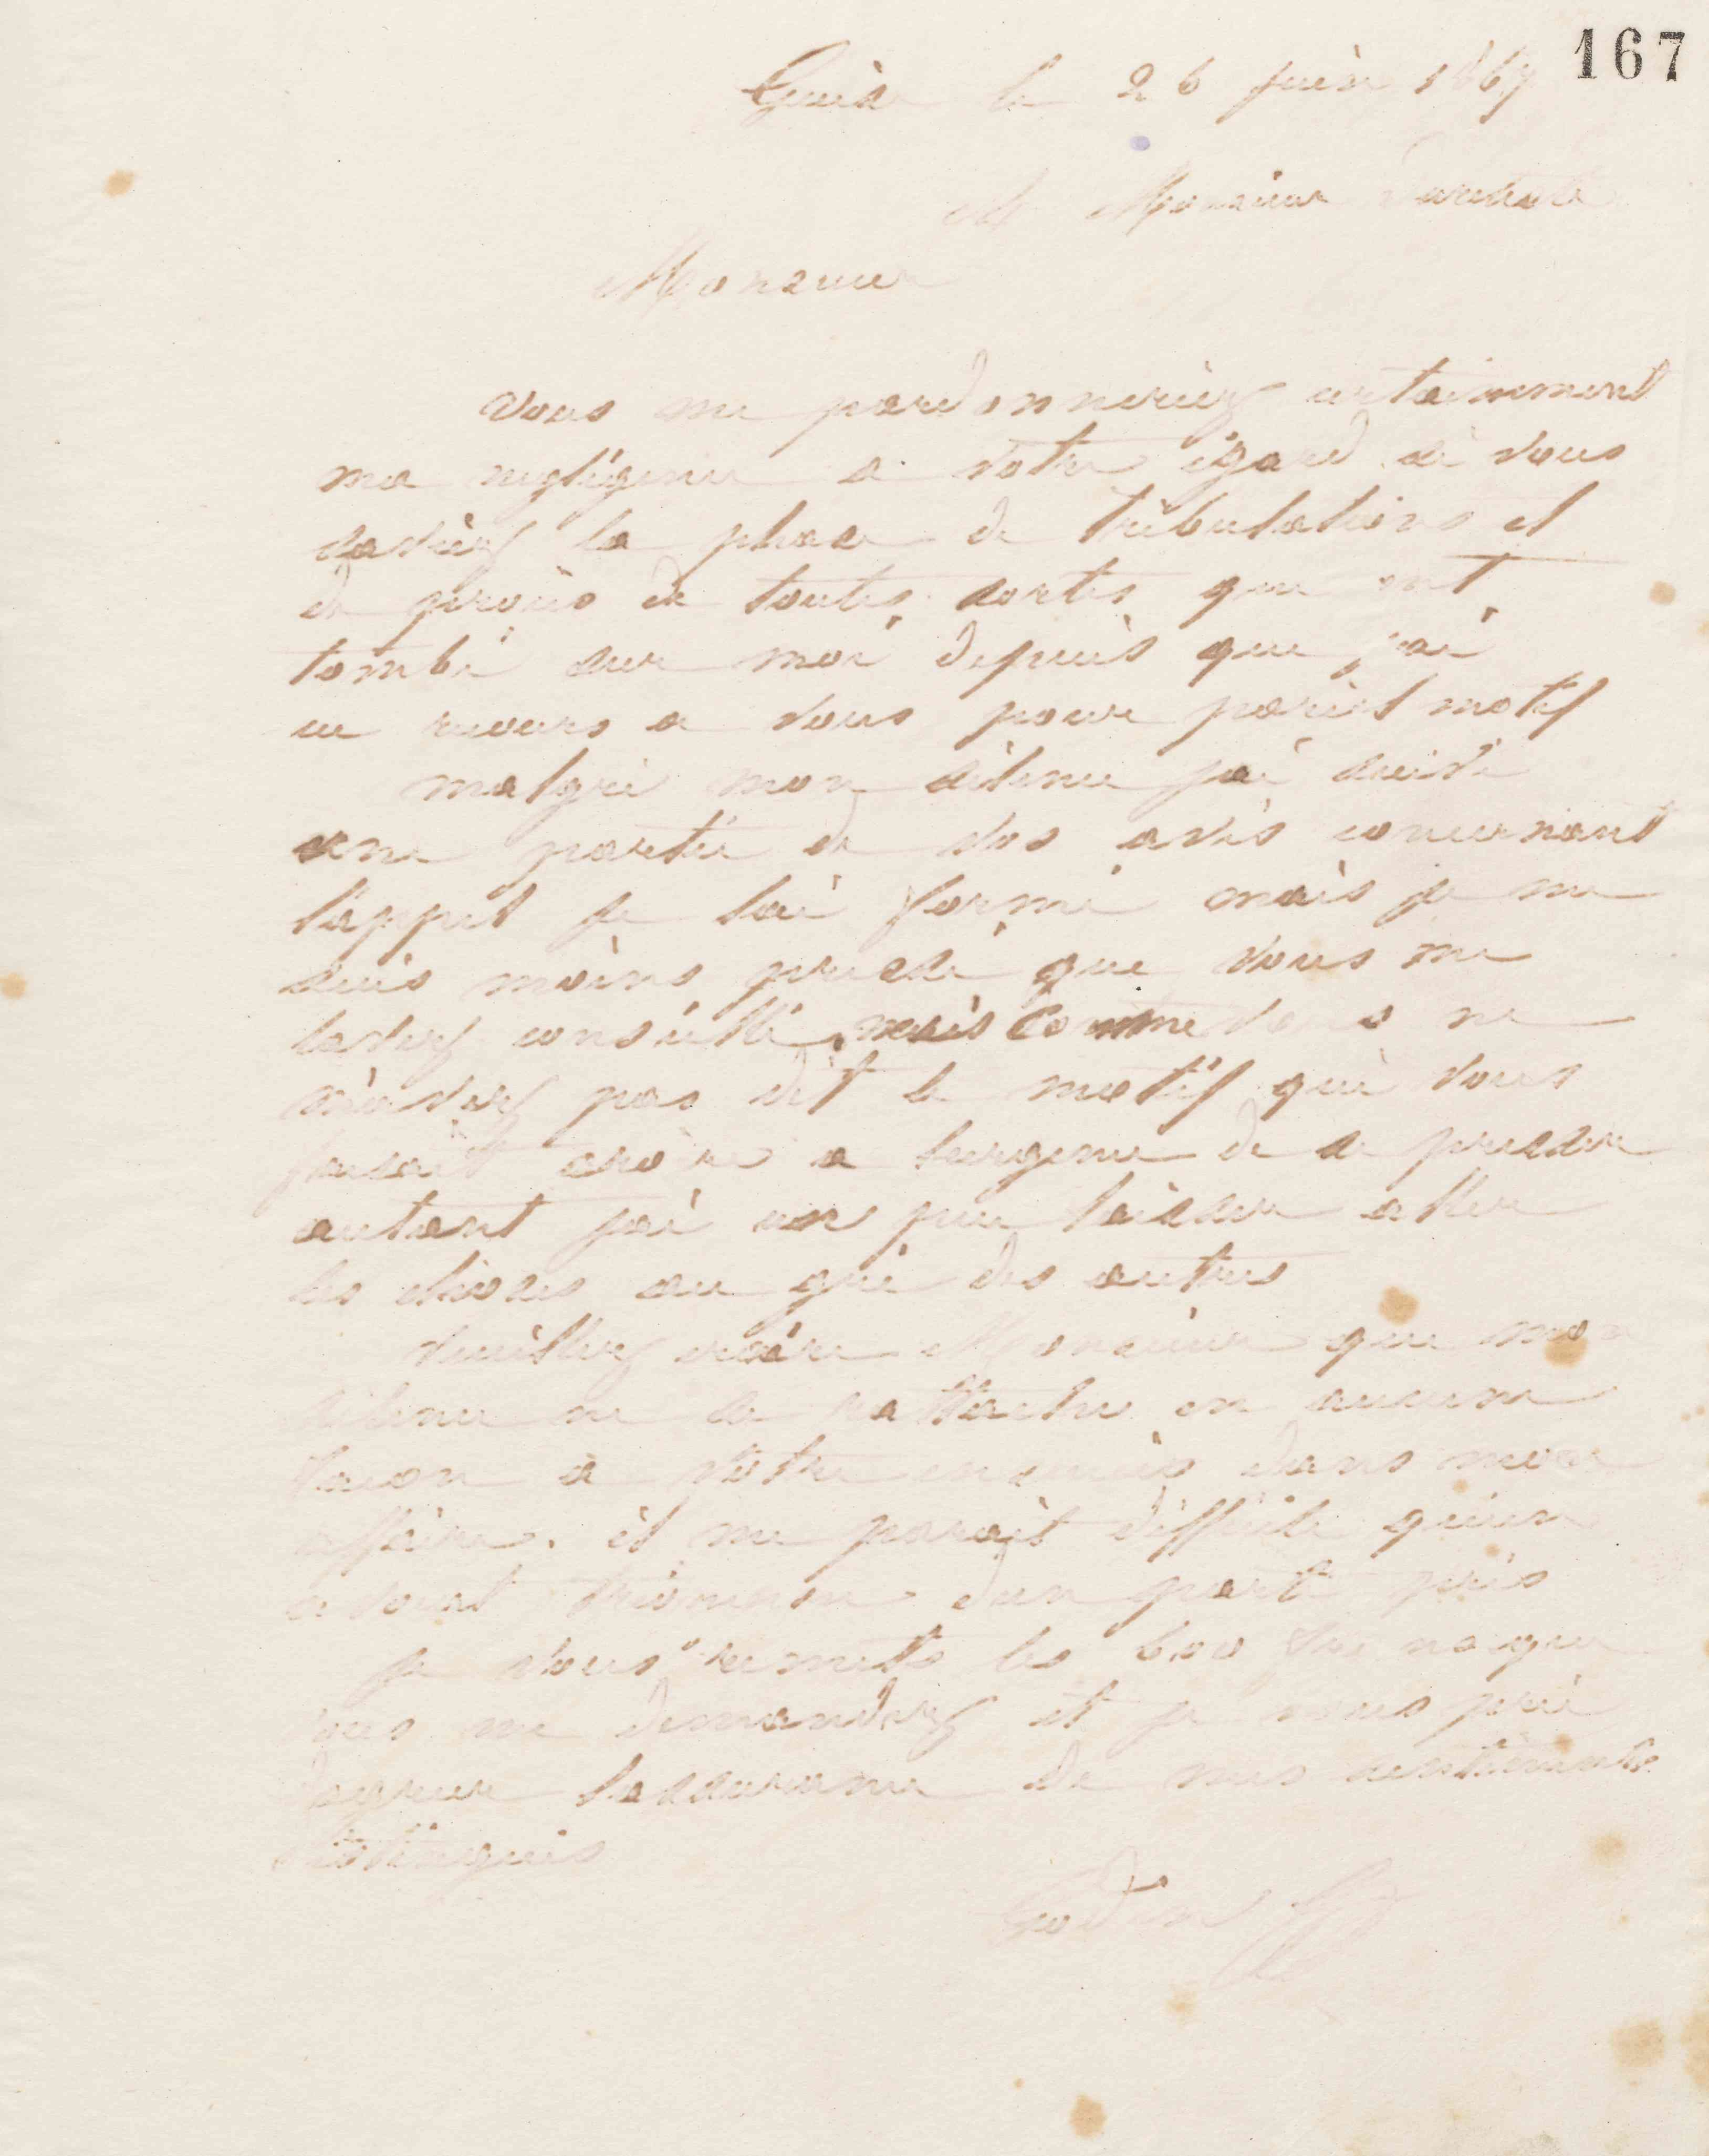 167
Guise le 26 juin 186
A Monsieur
Monsieur
vous me pardonneriez certainement
ma negligence a votre égard si vous
saviez la phase de tribulations et
de procès de toutes sortes que ont
tombé sur moi depuis que j'ai
eu recours a vous pour pareil motif
malgré mon silence j'ai suivi
une partie de vos avis concernant
l'appel je l'ai formé mais je me
suis moins pressé que vous me
laviez conseillé, mais comme vous ne
m'aviez pas dit le motif qui vous
faisait croire a lurgence de se presser
autant j'ai un peu laisser aller
les choses au gré des autres
veuillez croire Monsieur que mon
silence ne se rattache en aucune
facon a votre dans mon
affaire. il me parait difficile qu'un
avocat d'un parti pris
je vous remets les 600 que
vous me demandez et je vous prie
dagreer lassurance de mes sentiments
distingués
Godin